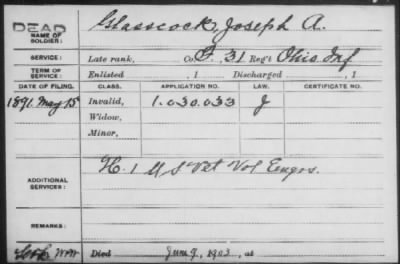 DEAD
NAME OF SOLDIER: Glasscock, Joseph A.
SERVICE: Late rank, Co. 31 Reg't Ohio Inf
TERM OF SERVICE: Enlisted , 1 Discharged , 1
DATE OF FILING. CLASS. APPLICATION NO. LAW. CERTIFICATE NO.
1891. May 15 Invalid, 1.030.033 J
Widow,
Minor,
ADDITIONAL SERVICES: H. 1 U S Vet Vol Engrs.
REMARKS:
Died June 9, 1903, at